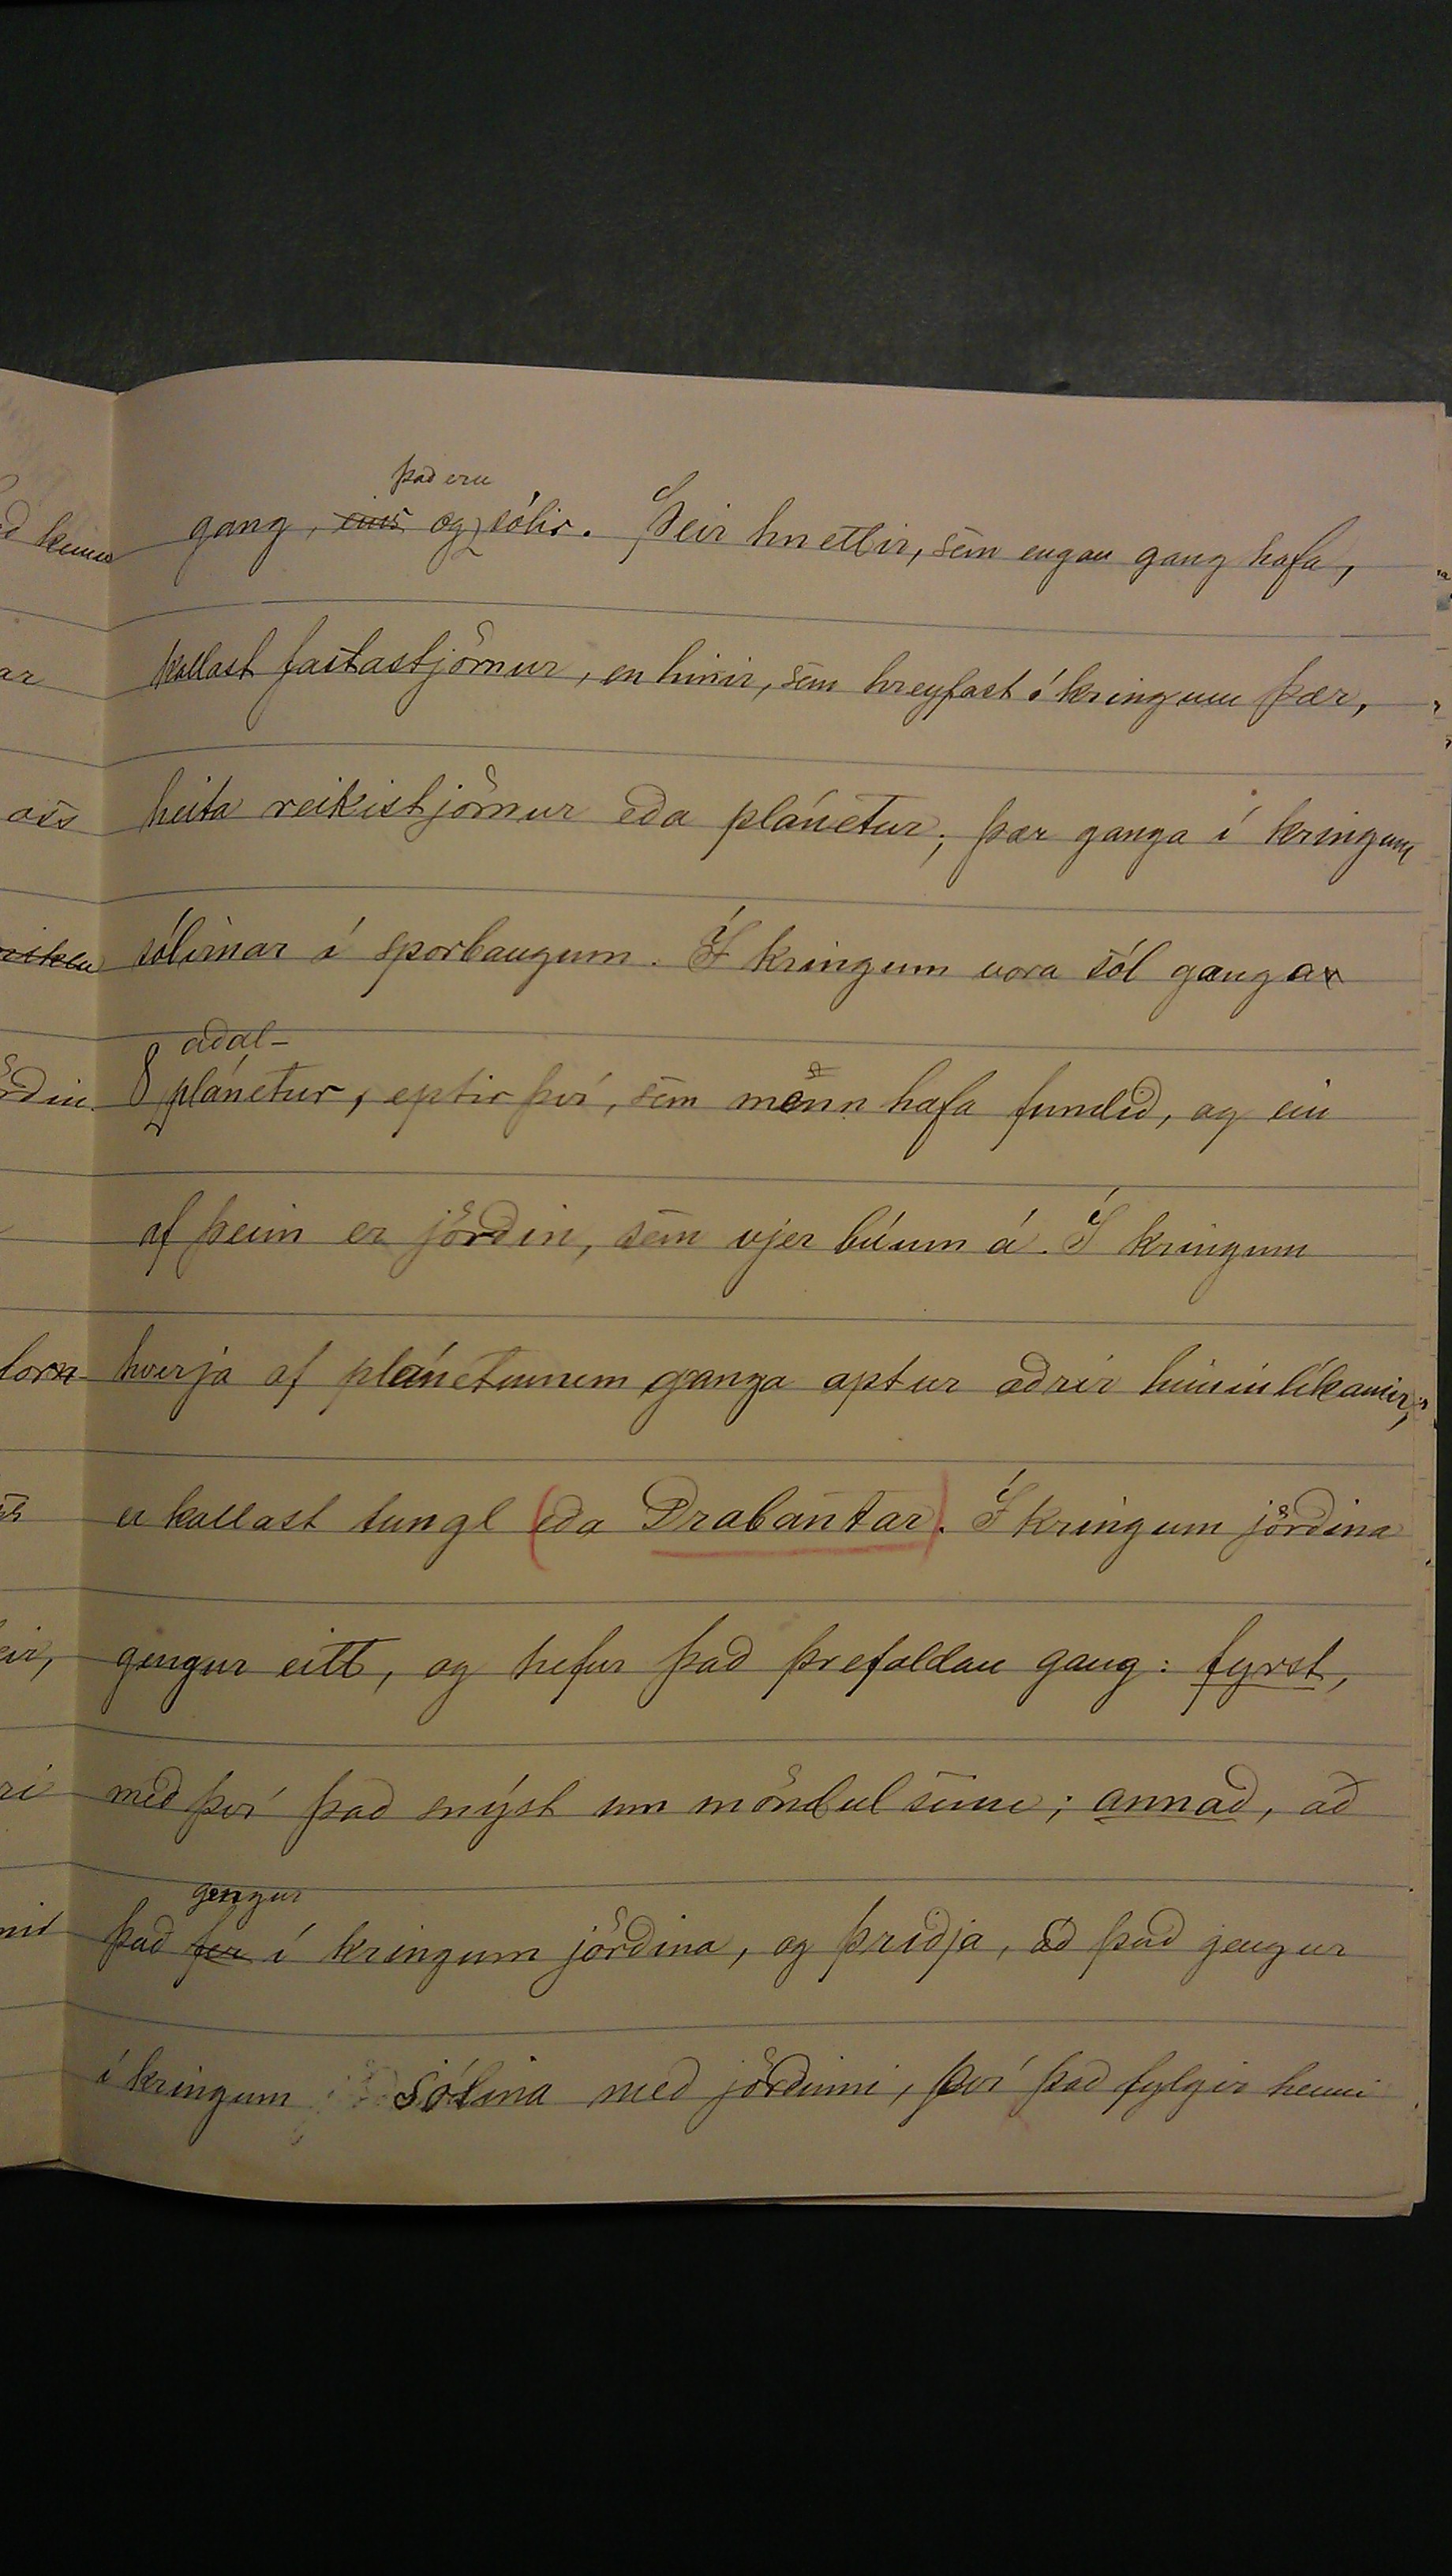 það eru
gang, eins og sólir. Þeir hnettir, sem engan gang hafa,
kallast fastastjörnur, en hinir, sem hreyfast í kringum þær,
heita reikistjörnur eða plánetur; þær ganga í kringum
sólirnar í sporbaugum. Í kringum vora sól ganga
aðal-
8 plánetur, eptir því, sem menn hafa fundið, og ein
af þeim er jörðin, sem vjer búum á. Í kringum
hverja af plánetunum ganga aptur aðrir himinlíkamir,
er kallast tungl (eða Drabantar). Í kringum jörðina
gengur eitt, og hefur það þrefaldan gang: fyrst,
með því það snýst um möndul sinn; annað, að
gengur
það fer í kringum jörðina, og þriðja, að það gengur
í kringum sólina með jörðinni, því það fylgir henni